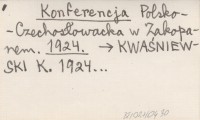 Konferencja Polsko-
-Czechosłowacka w Zakopa-
nem. 1924. → KWAŚNIEW-
SKI K. 1924...